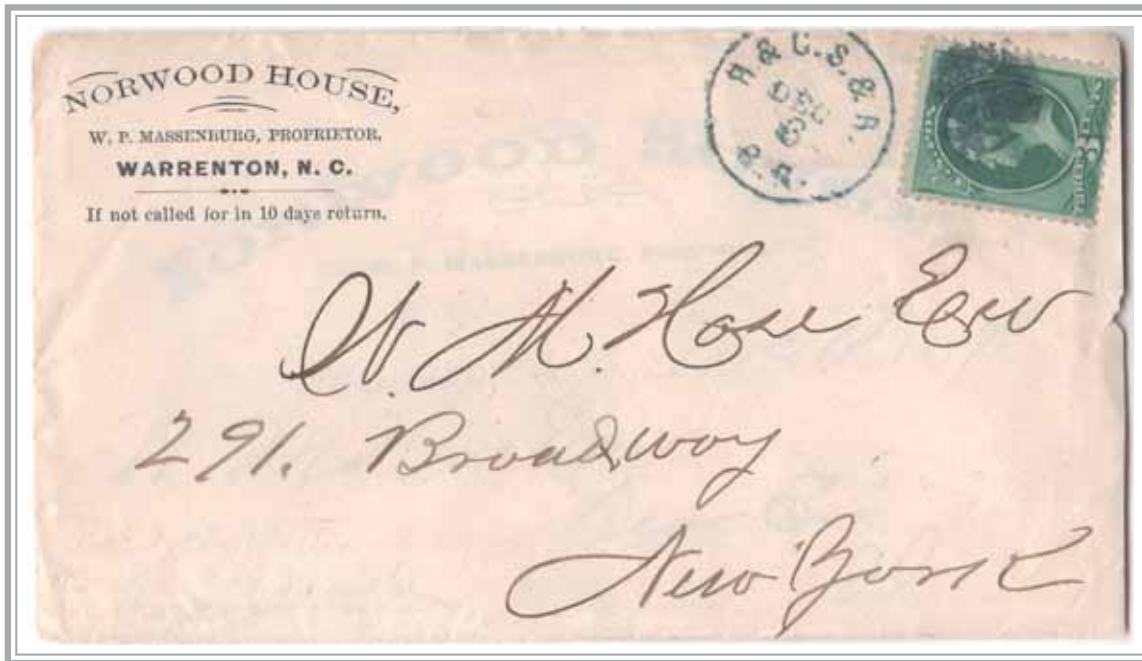 NORWOOD HOUSE,
W. P. MASSENBURG, PROPRIETOR,
WARRENTON, N. C.
If not called for in 10 days return.
R. & G. S. & R.
DEC
6
R. R.
W. M. Hose Esq
291. Broadway
New York